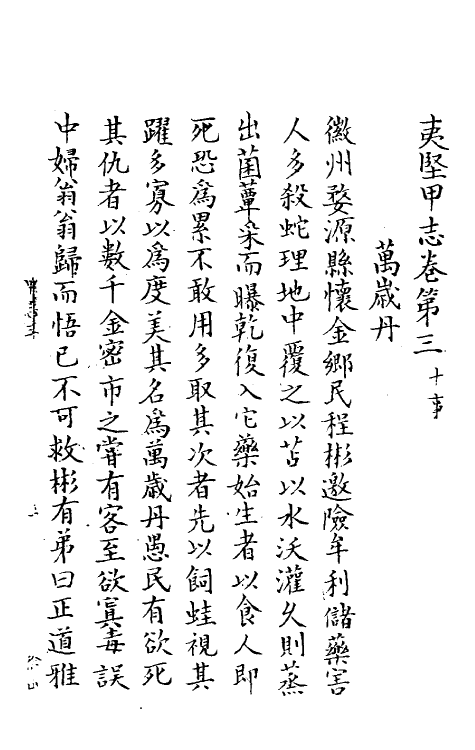 夷堅甲志卷第三 十事
萬歳丹
徽州婺源縣懷金鄉民程彬邀險牟利儲藥害
人多殺蛇理地中覆之以苫以水沃灌久則蒸
出菌蕈采而曝乾復入它藥始生者以食人即
死恐爲累不敢用多取其次者先以飼蛙視其
躍多寡以爲度美其名爲萬歳丹愚民有欲死
其仇者以數千金密市之甞有客至欲寘毒誤
中婦翁翁歸而悟已不可救彬有弟曰正道雅